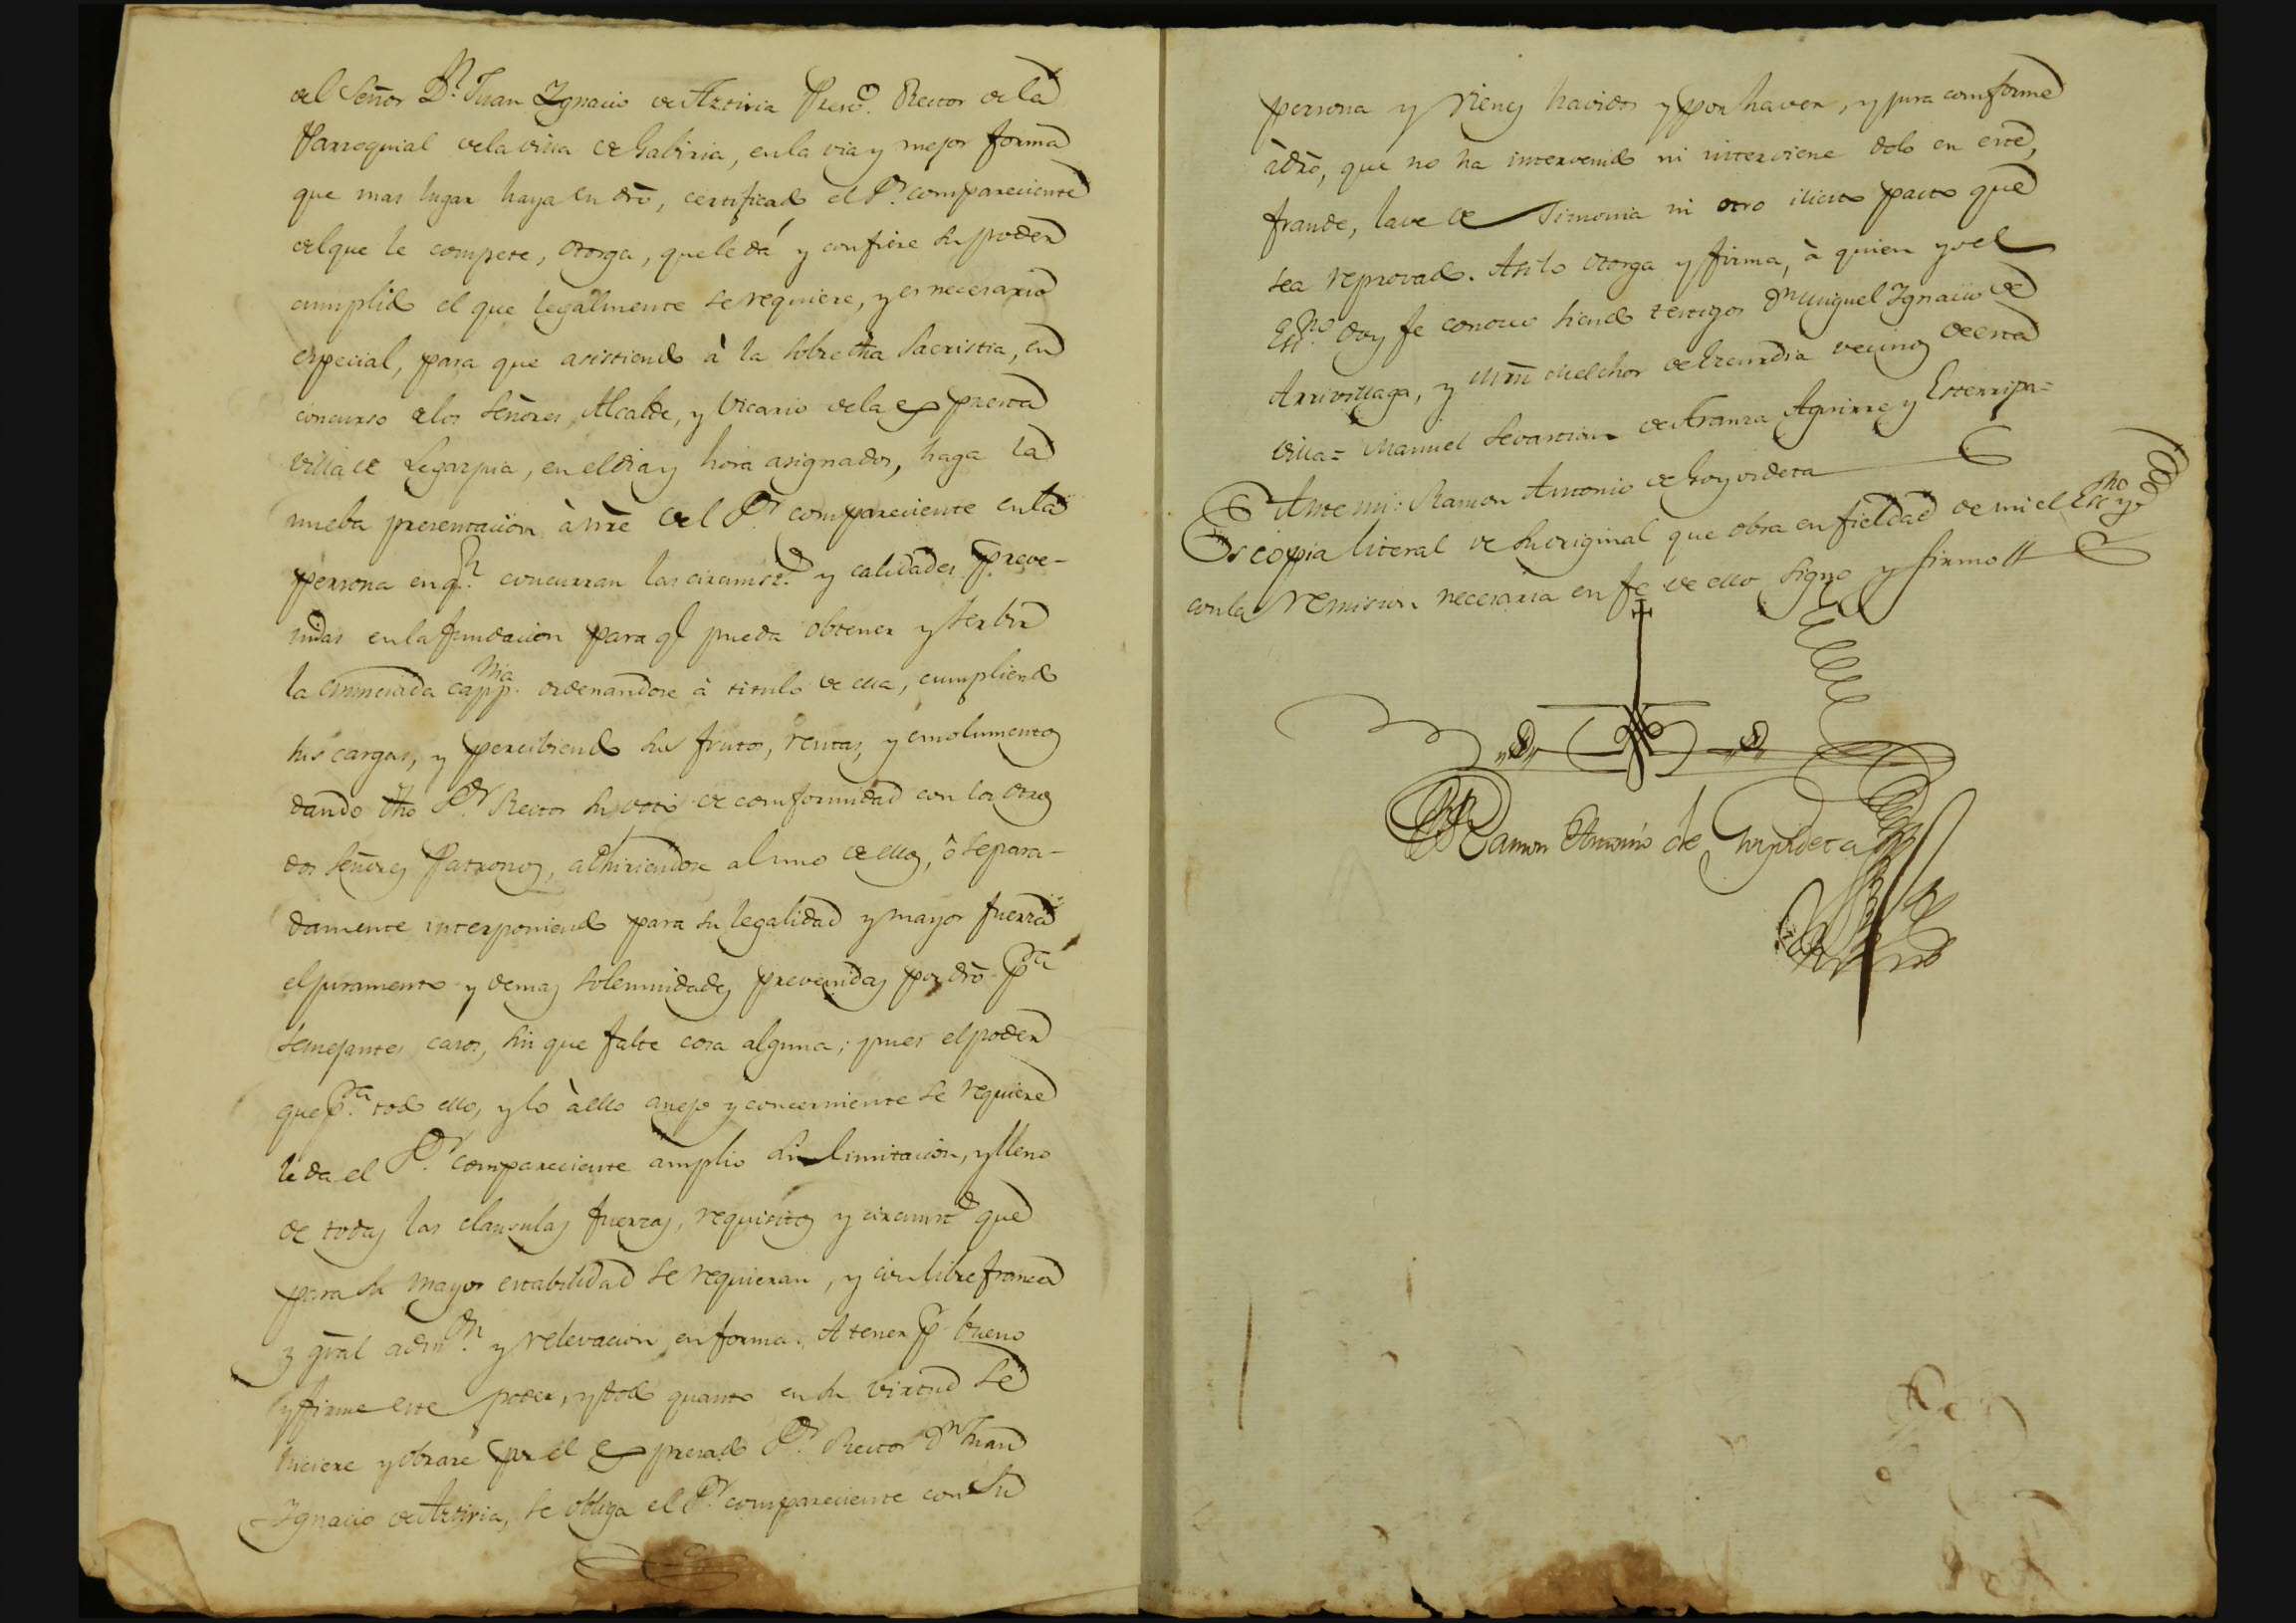 del Señor Dn. Juan Ignacio de Arsiria Presvo. Rector de la
Parroquial de la villa de Gabiria, en la via y mejor forma
que mas lugar haya en dro, certificado el Sr. compareciente
del que le compete, otorga, que le dá y confiere su poder
cumplido el que legalmente se requiere, y es necesario
especial, para que asistiendo à la sobre dha Sacristia, en
concurso de los Señores Alcalde, y Vicario de la expresada
villa de Legazpia, en el dia y hora asignados, haga la
nueba presentacion à nre del Sr. compareciente en la
persona en qn. concurran las circunstas. y calidades preve-
nidas en la fundacion para q pueda obtener y serbir
la enunciada cappnia. ordenandose à titulo de ella, cumpliendo
sus cargas, y percibiendo sus frutos, rentas, y emolumentos
dando dho Sr. Rector su voto de conformidad con los otros
dos Señores Patronos, adhiriendose al uno de ellos, ô separa-
damente interponiendo para su legalidad y mayor fuerza
el juramento y demas solemnidades prevenidas por dro pa.
semejantes casos, sin que falte cosa alguna; pues el poder
que pa. todo ello, y lo à ello anejo y concerniente se requiere
le da el Sr. compareciente amplio sin limitacion, y lleno
de todas las clausulas fuerzas, requisitos y circunsts. que
para su mayor estabilidad se requieran, y con libre franca
y gral admn. y relevacion en forma. A tener p. bueno
y firme este poder, y todo quanto en su virtud se
hiciere y obrare por el expresado Sr. Rector Dn Juan
Ignacio de Arsiria, se obliga el Sr. compareciente con su
persona y vienes havidos y por haver, y jura conforme
à dro, que no ha intervenido ni interviene dolo en este,
fraude, lave de Simonia ni otro ilicito pacto que
sea reprovado. Asi lo otorga y firma, à quien yo el
Essno. doy fe conozco siendo testigos Dn Miguel Ignacio de
Arrivillaga, y Mrn Melchor de vecinos de esta
villa = Manuel Sevastian de Aranza Aguirre y Esterripa =
Ante mi: Ramon Antonio de Goyvideta
Es copia literal de su original que obra en fieldad de mi el Essno y
con la remision necesaria en fe de ello signo y firmo
Ramon Antonio de Goyvideta